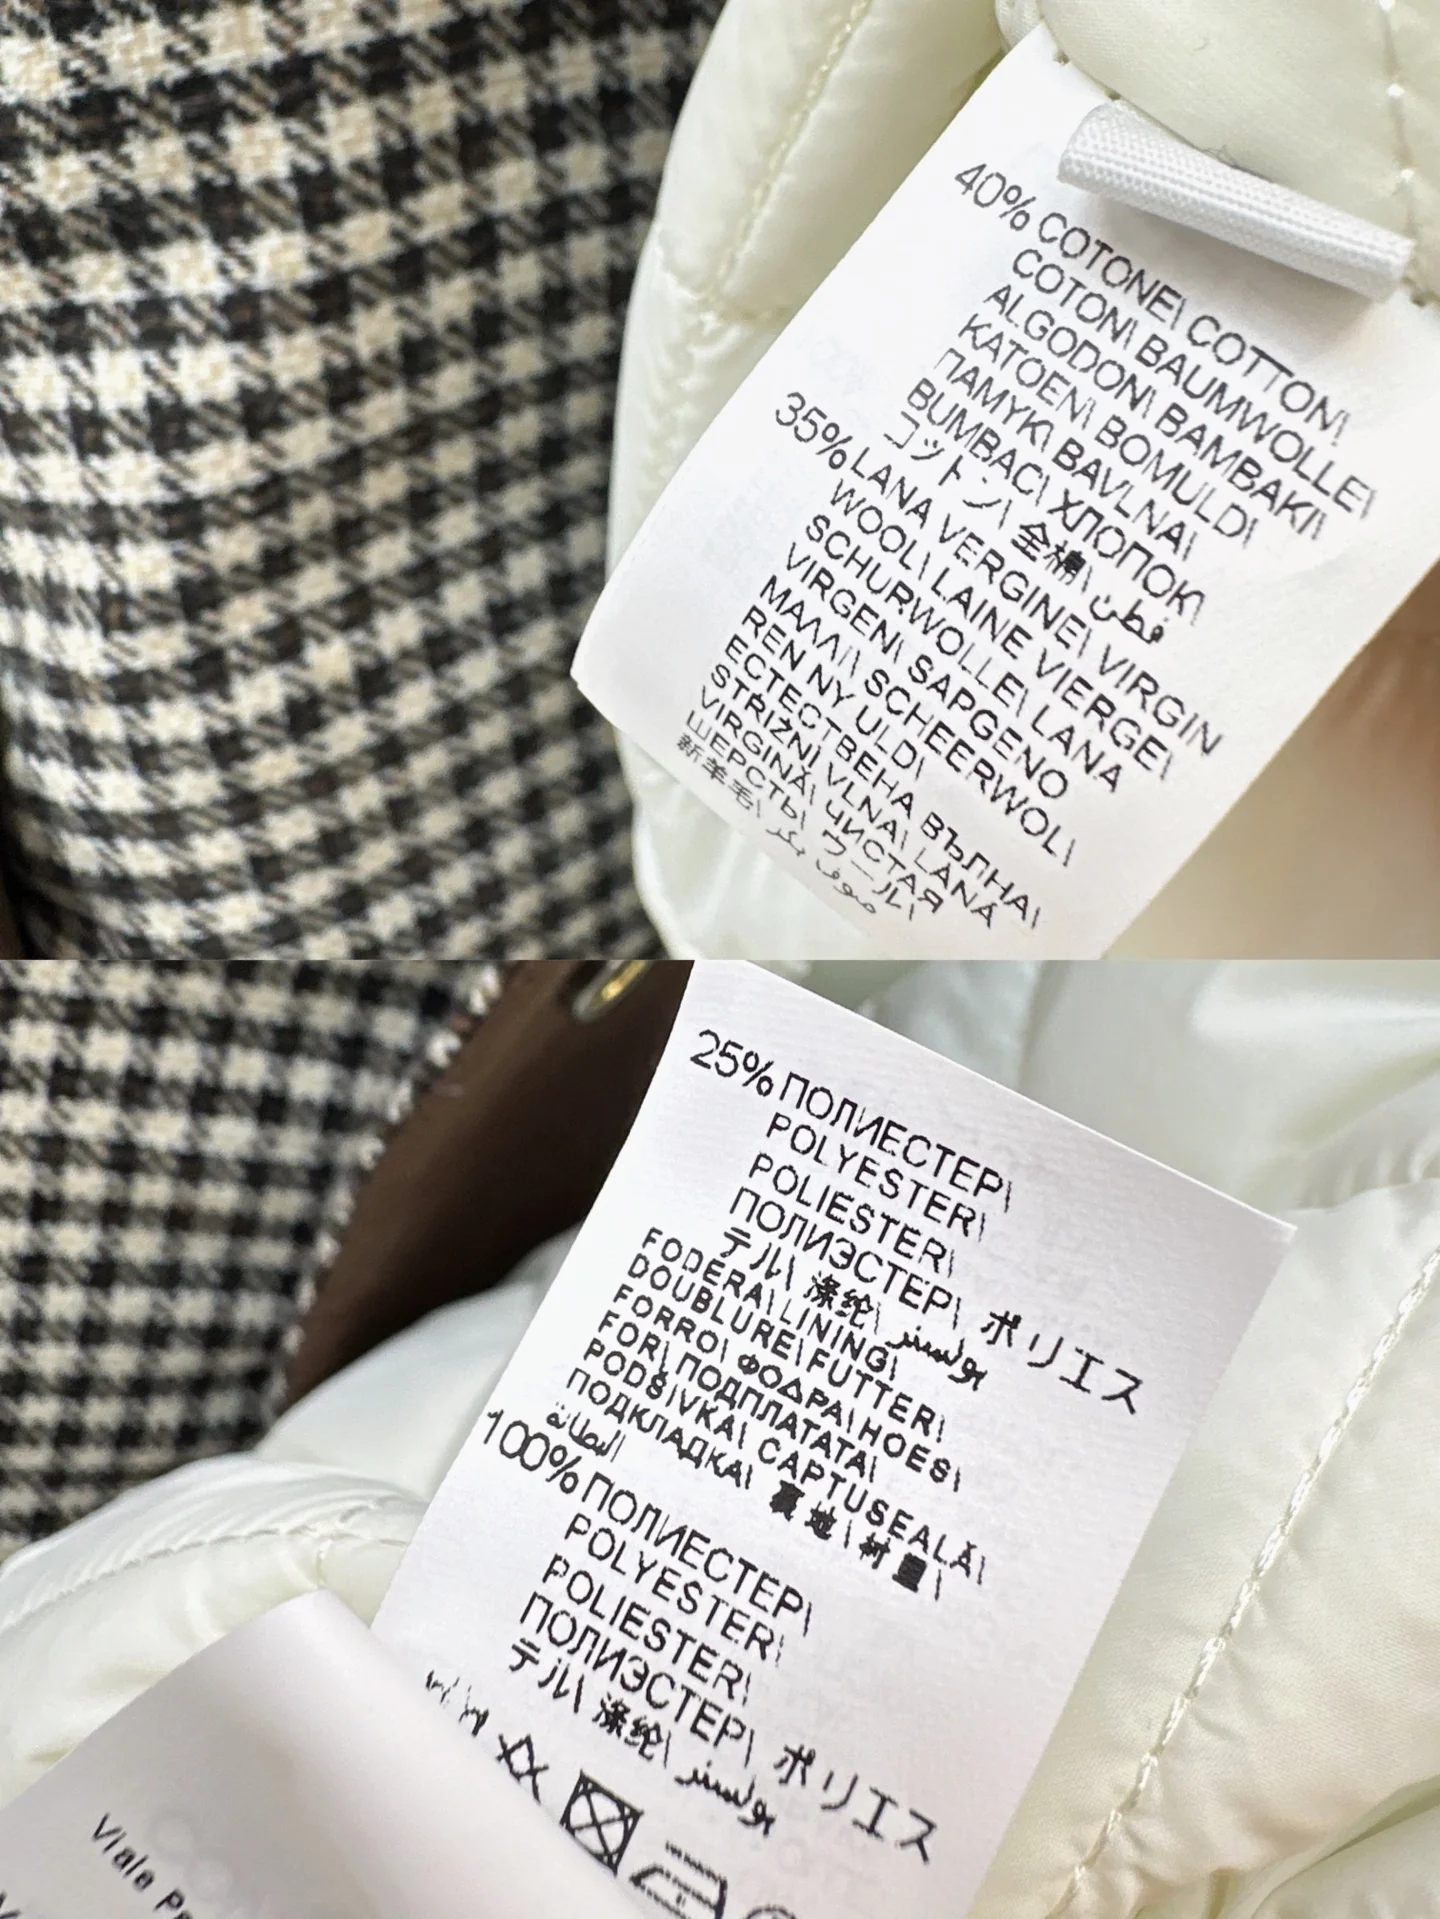 40% COTONE\ COTTON\
COTON\ BAUMWOLLE\
ALGODON\ BAMBAKI\
KATOEN\ BOMULD\
ПАМУК\ BAVLNA\
BUMBAC\ ХЛОПОК\
コットン\ 全棉\ قطن
35% LANA VERGINE\ VIRGIN
WOOL\ LAINE VIERGE\
SCHURWOLLE\ LANA
VIRGEN\ SAPGENO
MAΛΛI\ SCHEERWOL\
REN NY ULD\
ЕСТЕСТВЕНА ВЪЛНА\
STŘIŽNÍ VLNA\ LÂNĂ
VIRGINĂ\ ЧИСТАЯ
ШЕРСТЬ\ ウール\
新羊毛\ صوف بكر
25% ПОЛИЕСТЕР\
POLYESTER\
POLIESTER\
ПОЛИЭСТЕР\ ポリエス
テル\ 涤纶\ بوليستر
FODERA\ LINING\
DOUBLURE\ FUTTER\
FORRO\ ΦΟΔΡΑ\ HOES\
FOR\ ПОДПЛАТАТА\
PODŠIVKA\ CAPTUSEALĂ\
ПОДКЛАДКА\ 裏地\ 衬里\
البطانة
100% ПОЛИЕСТЕР\
POLYESTER\
POLIESTER\
ПОЛИЭСТЕР\ ポリエス
テル\ 涤纶\ بوليستر
Viale